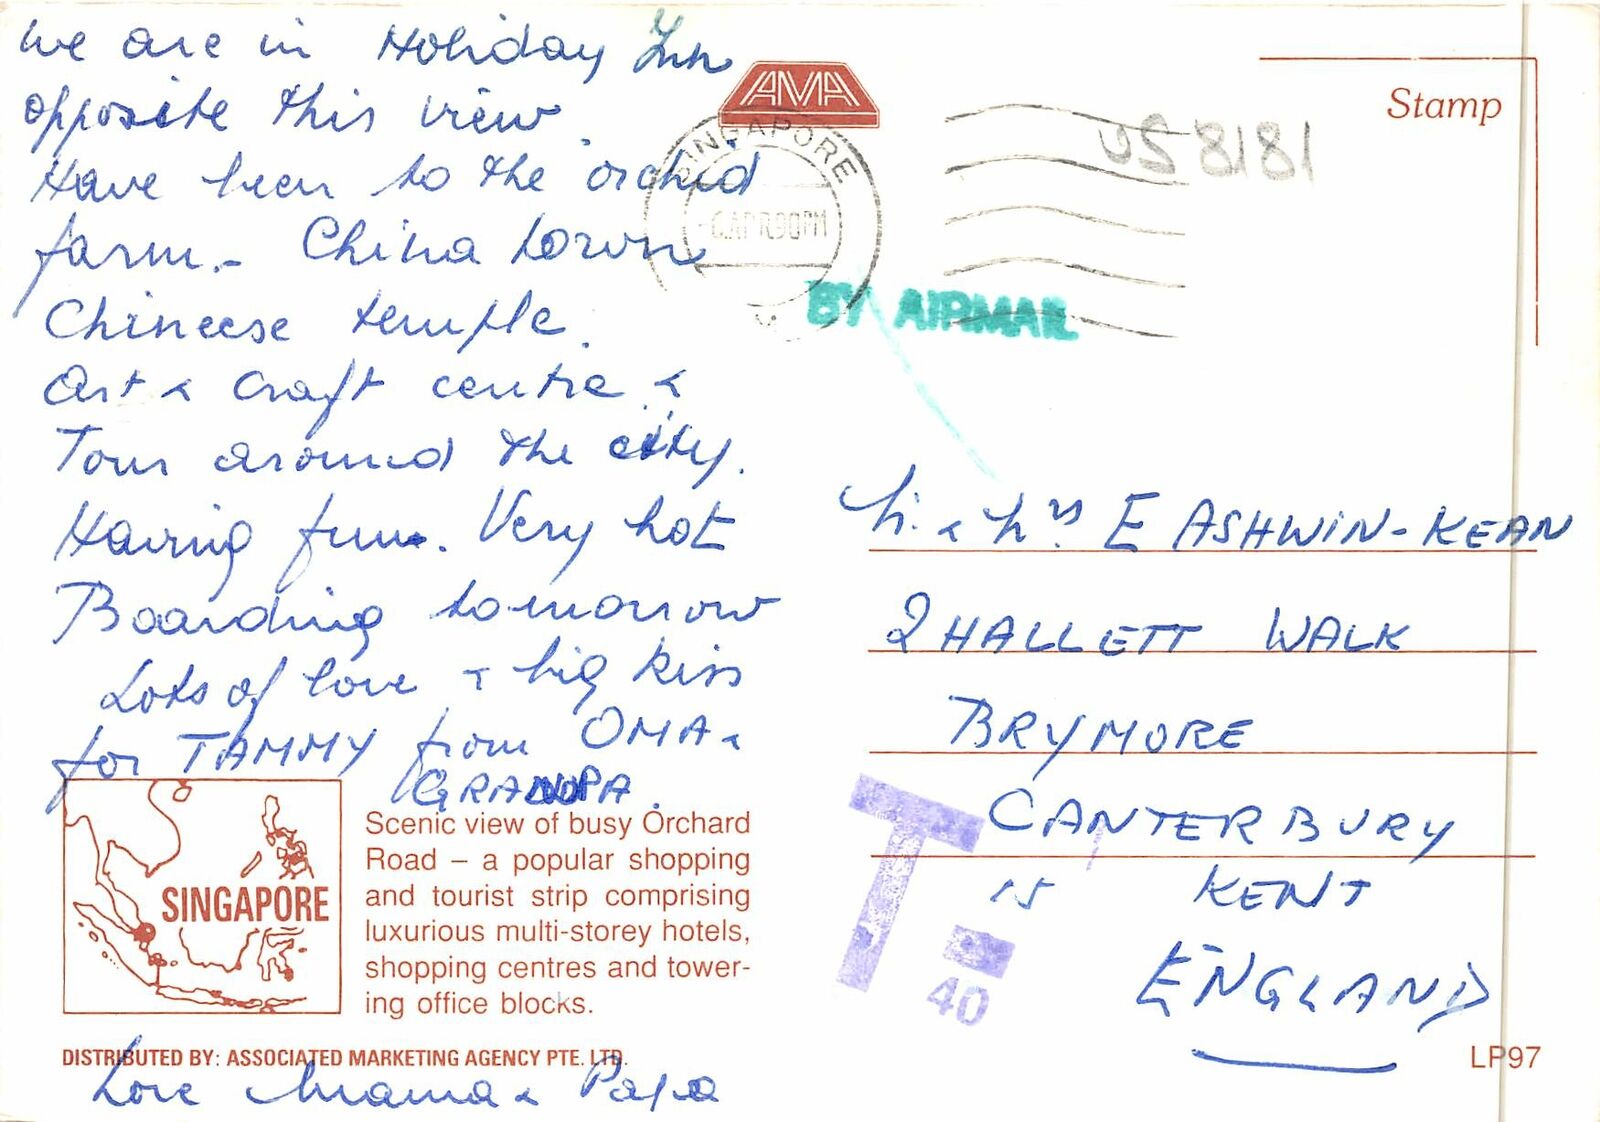 We are in Holiday Inn
opposite this view.
Have been to the orchid
farm. - China town
Chineese temple.
Art & Craft centre &
Tour around the city.
Having fun. Very hot
Boarding tomorrow
Lots of love & big kiss
for TAMMY from OMA &
GRANDPA.
SINGAPORE
Scenic view of busy Orchard
Road – a popular shopping
and tourist strip comprising
luxurious multi-storey hotels,
shopping centres and tower-
ing office blocks.
DISTRIBUTED BY: ASSOCIATED MARKETING AGENCY PTE. LTD.
Love Mama & Papa
AMA
SINGAPORE
6 APR 90 PM
BY AIRMAIL
Stamp
US 8181
M. & Mrs E ASHWIN-KEAN
2 HALLETT WALK
BRYMORE
CANTERBURY
KENT
ENGLAND
T
15
40
LP97